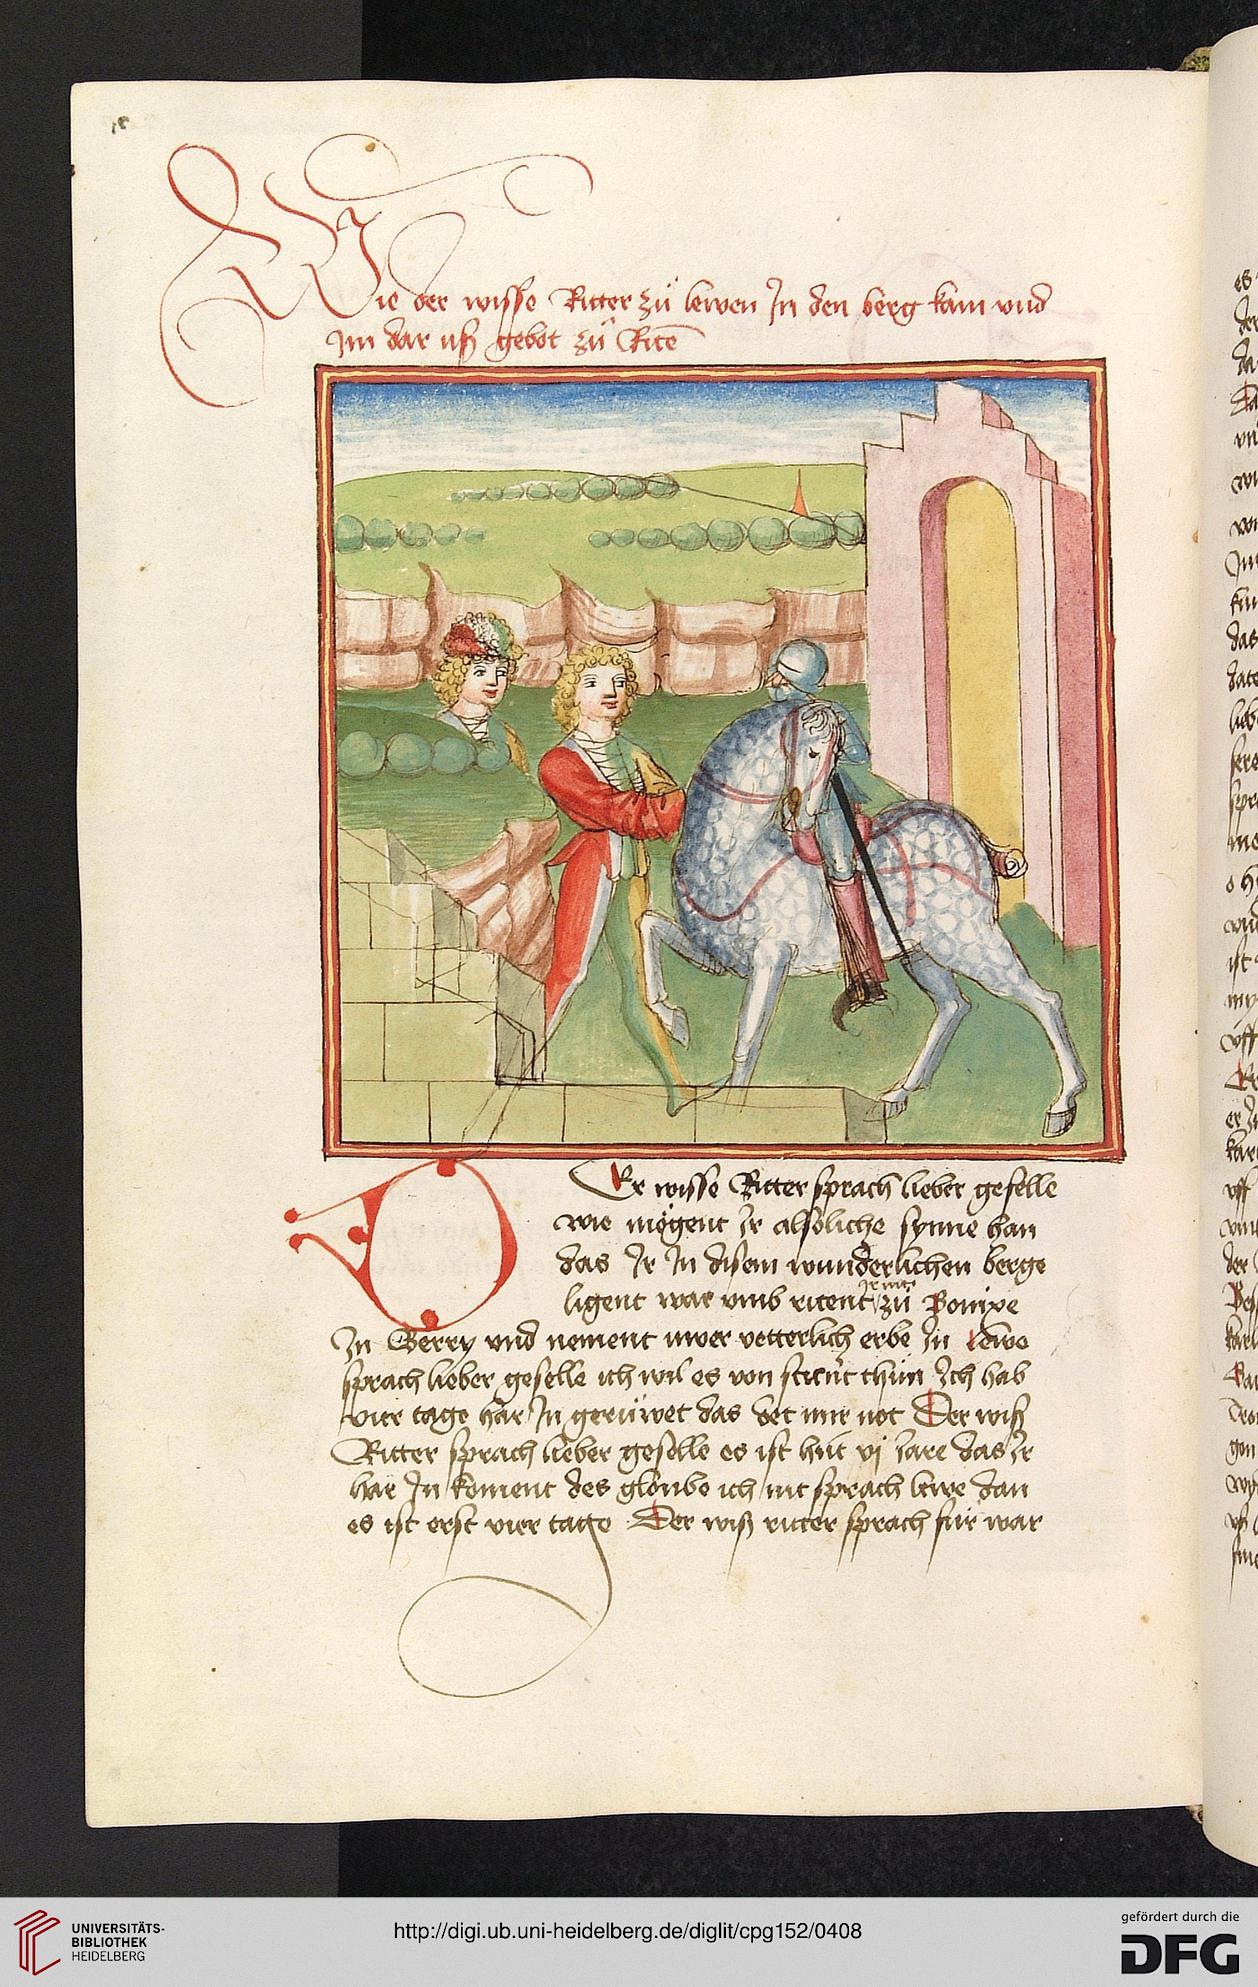 Wie der wisse Ritter zů lewen Jn den berg kam vnd
Jm dar uß gebot zů Ritē
DEr wisse Ritter sprach lieber geselle
wie mögent Ir alsoliche synne han
das Ir Jn disem wunderlichen berge
ligent war vmb ritent Ir nit zů Bonixe
Jn Berry vnd nement uwer vetterlich erbe Jn Lewe
sprach lieber geselle ich wil es von stunt thůn Ich hab
vier tage här Jn gerůwet das det mir not Der wiß
Ritter sprach lieber geselle es ist hut vj Jare das Ir
har Jn koment des gloube ich nit sprach lewe dan
es ist erst vier tage Der wiß ritter sprach für war
UNIVERSITÄTS-
BIBLIOTHEK
HEIDELBERG
http://digi.ub.uni-heidelberg.de/diglit/cpg152/0408
gefördert durch die
DFG